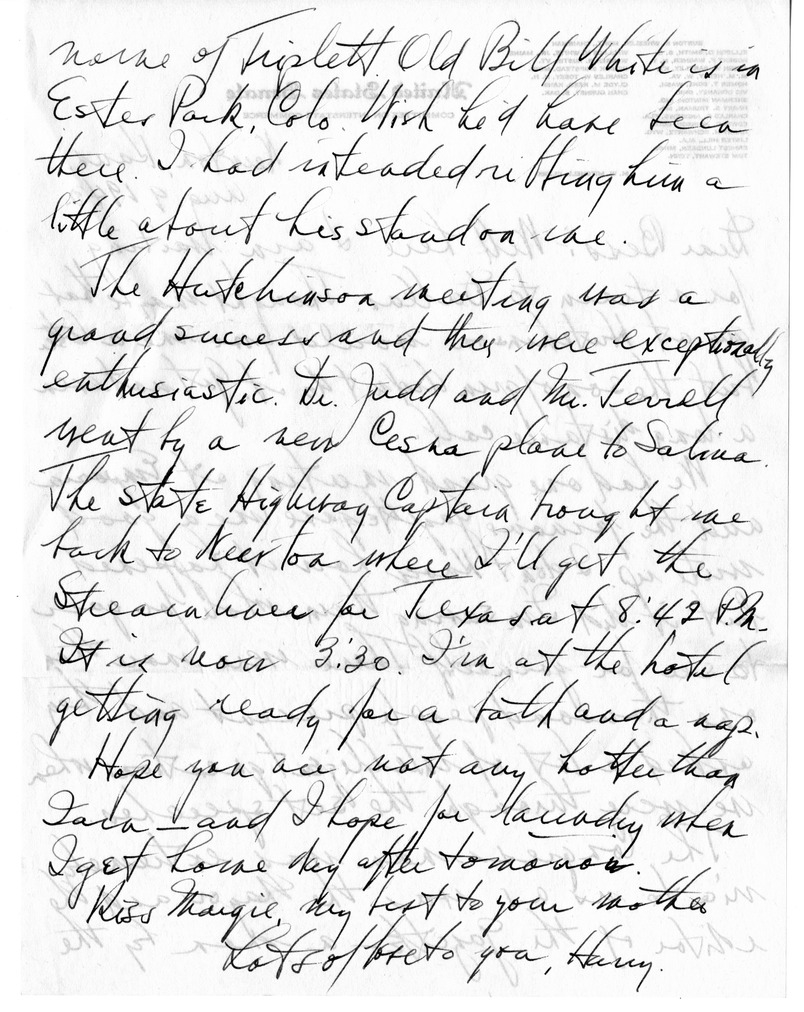 name of Triplett. Old Bill White is in
Estes Park, Colo. Wish he'd have been
there. I had intended ritting him a
little about his stand on me.
The Hutchinson meeting was a
grand success and they were exceptionally
enthusiastic. Dr. Judd and Mr. Terrell
went by a new Cesna plane to Salina.
The state Highway Captain brought me
back to Newton where I'll get the
Streamliner for Texas at 8:42 P.M.
It is now 3:30. I'm at the hotel
getting ready for a bath and a nap.
Hope you are not any hotter than
I am — and I hope for laundry when
I get home day after tomorrow.
Kiss Margie, my best to your mother
Lots of love to you, Harry.